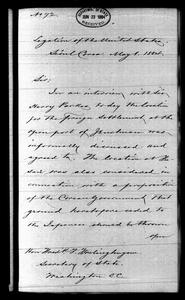 No. 72.
JUN 23 1884
RECEIVED
Legation of the United States
Seoul Corea May 1. 1884.
Sir;
In an interview with Sir
Harry Parkes, to day the location
for the Foreign Settlement, at the
open port of Chemulpo was
informally discussed and
agreed to. The location at the
was also considered in
connection with a proposition
of the Corean Government, that
ground heretofore ceded to
the Japanese should be thrown
open
Hon: Fred. T. Frelinghuysen
Secretary of State.
Washington D.C.